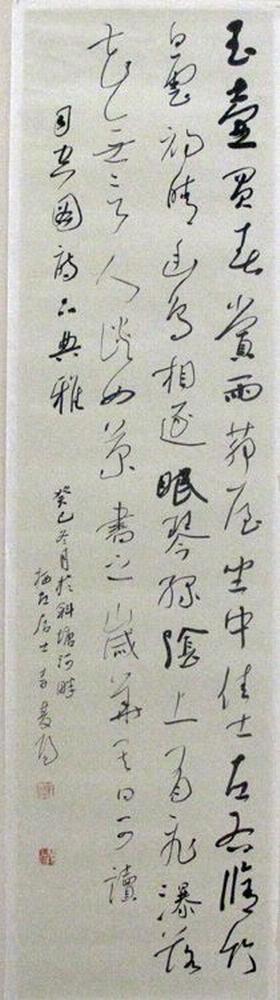 玉壺買春賞雨茆屋坐中佳士左右脩竹
白雲初晴幽鳥相逐眠琴綠陰上有飛瀑落
花無言人淡如菊書之歲華其曰可讀
司空圖詩品典雅
癸巳冬月於斜塘河畔
居士